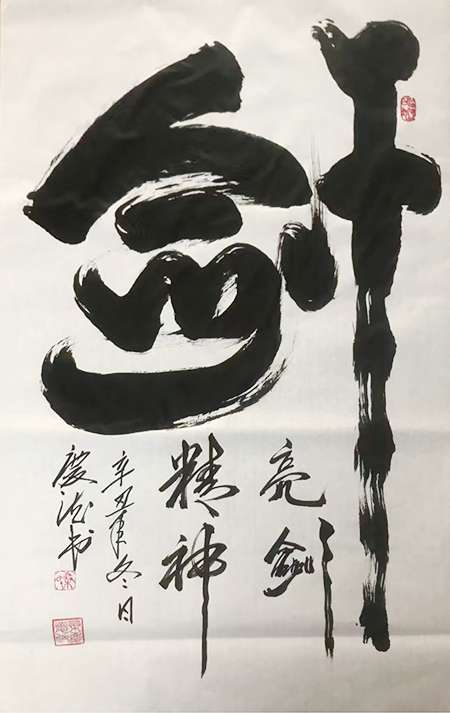 剑
亮剑
精神
辛丑年冬月
庆德书